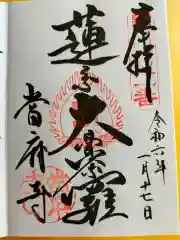 奉拝
令和六年
一月十七日
蓮糸大曼荼羅
當麻寺